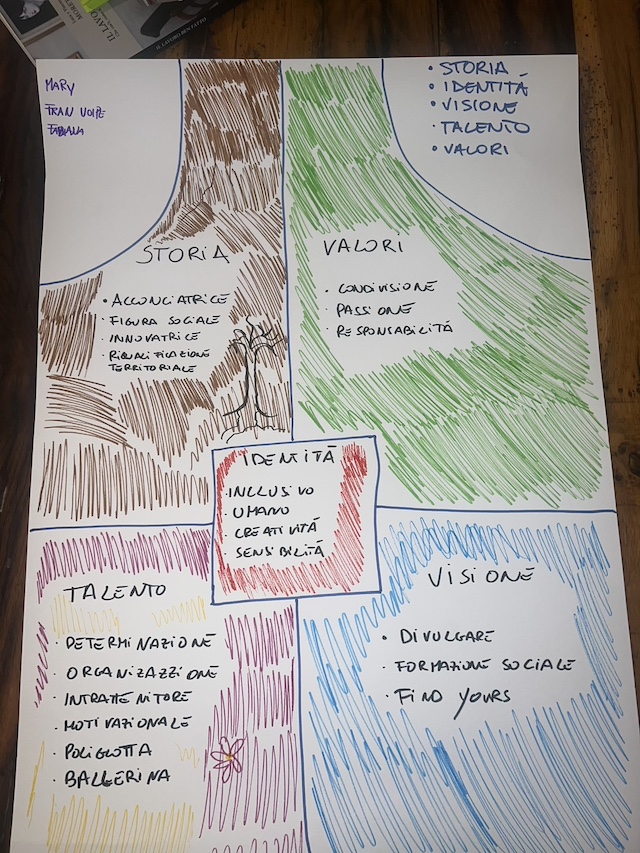 IL LAVORO BEN FATTO
MARY
FRAN VOLPE
FABIANA
• STORIA
• IDENTITÁ
• VISIONE
• TALENTO
• VALORI
STORIA
• ACCONCIATRICE
• FIGURA SOCIALE
• INNOVATRICE
• RIQUALIFICAZIONE
TERRITORIALE
VALORI
• CONDIVISIONE
• PASSIONE
• RESPONSABILITÁ
IDENTITÁ
• INCLUSIVO
• UMANO
• CREATIVITÁ
• SENSIBILITÁ
TALENTO
• DETERMINAZIONE
• ORGANIZAZZIONE
• INTRATTENITORE
• MOTIVAZIONALE
• POLIGLOTTA
• BALLERINA
VISIONE
• DIVULGARE
• FORMAZIONE SOCIALE
• FIND YOURS